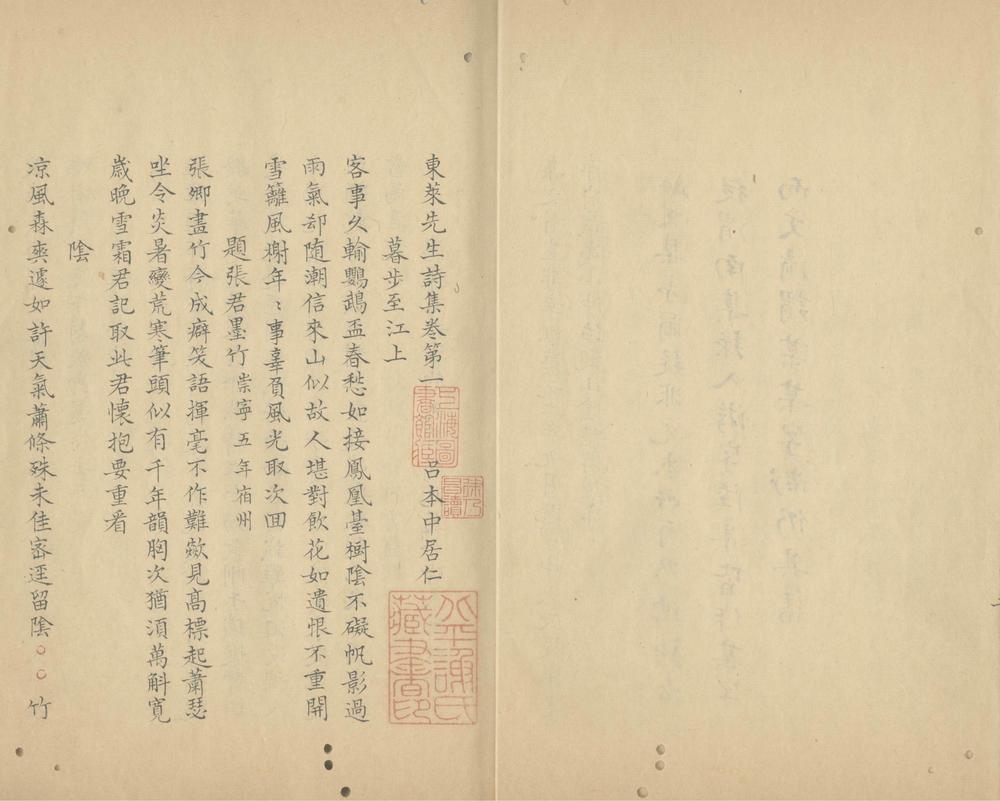 東萊先生詩集卷第一　呂本中居仁
暮步至江上
客事久輸鸚鵡盃春愁如接鳳凰臺樹陰不礙帆影過
雨氣却随潮信來山似故人堪對飲花如遺恨不重開
雪籬風榭年〻事辜負風光取次回
題張君墨竹崇寧五年宿州
張卿畫竹今成癖笑語揮毫不作難欻見高標起蕭瑟
坐令炎暑變荒寒筆頭似有千年韻胸次猶須萬斛寬
歲晚雪霜君記取此君懷抱要重看
陰
凉風森爽遽如許天氣蕭條殊未佳密逕留陰○○竹
北平謝氏藏書印